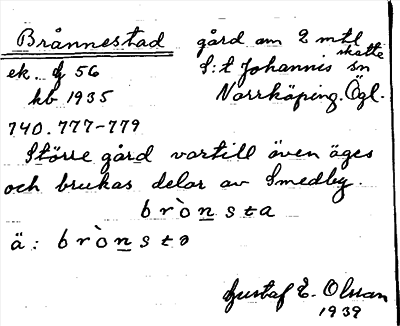 Brånnestad gård om 2 mtl
skatte
ek. bl 56 S:t Johannis sn
kb 1935 Norrköping. Ögl.
740.777-779
Större gård vartill även äges
och brukas delar av Smedby.
bròn̲sta
ä: bròn̲sta
Gustaf E. Olsson
1939